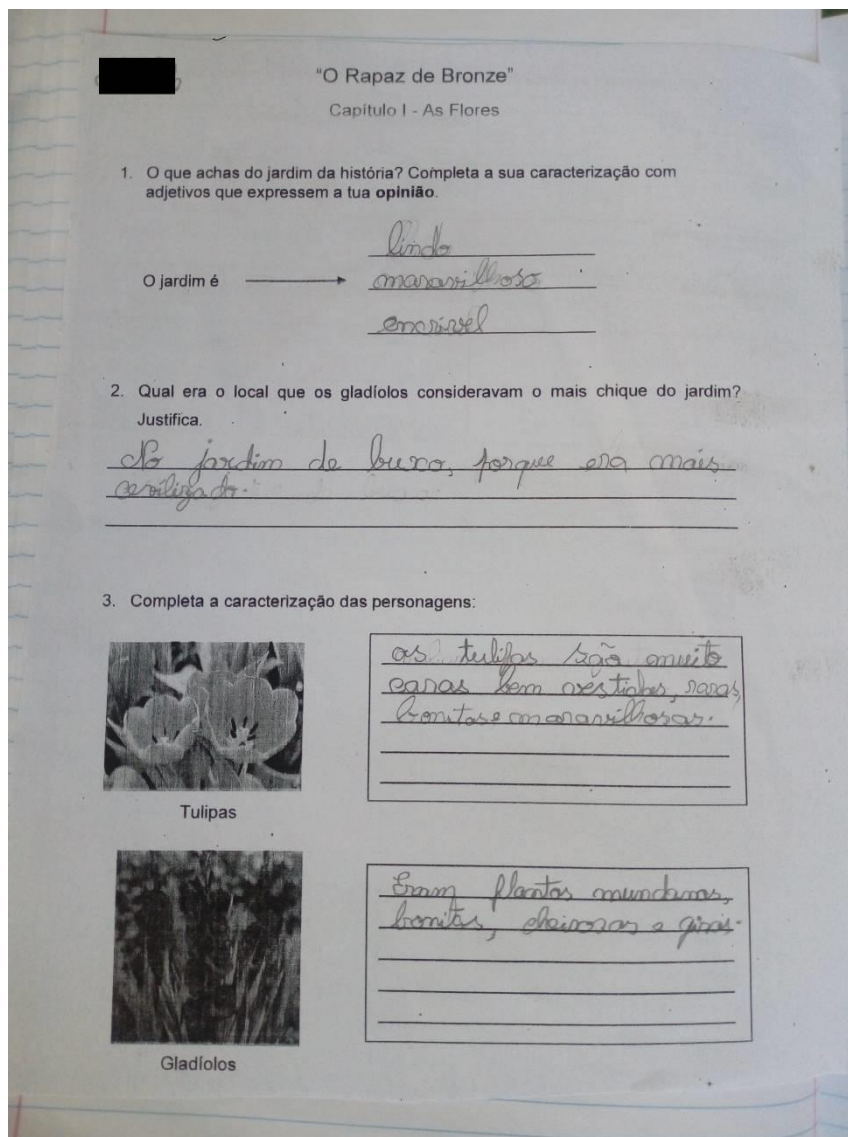 “O Rapaz de Bronze”
Capítulo I - As Flores
1. O que achas do jardim da história? Completa a sua caracterização com
adjetivos que expressem a tua opinião.
lindo
O jardim é maravilhoso
encrivel
2. Qual era o local que os gladíolos consideravam o mais chique do jardim?
Justifica.
No jardim de buxo, porque era mais
cevilizado.
3. Completa a caracterização das personagens:
os tulipas são muito
caras bem vestidas, raras,
bonitas e maravilhosas.
Tulipas
Eram plantas mundanas,
bonitas, cheirosas e giras.
Gladíolos